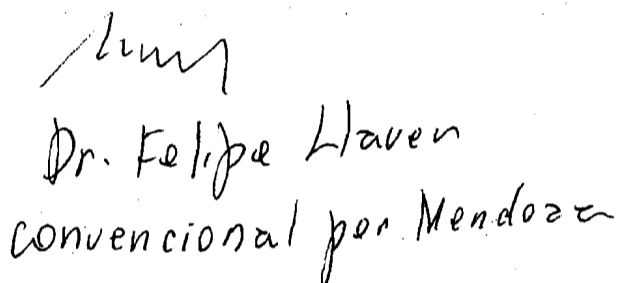 Dr. Felipe Llaver
convencional por Mendoza